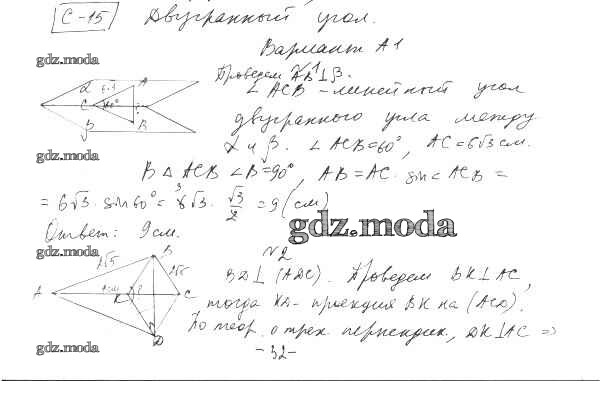 С-15 Двугранный угол.
Вариант А1
gdz.moda
№1
Проведем AB⊥β.
∠ACB - линейный угол
двугранного угла между
α и β. ∠ACB=60°, AC=6√3 см.
α 6√3 A
C 60°
β B
gdz.moda
В △ACB ∠B=90°, AB=AC·sin∠ACB =
= 6√3 · sin60° = 6√3 · √3/2 = 9 (см)
Ответ: 9 см.
gdz.moda
gdz.moda
№2
BD⊥(ADC). Проведем BK⊥AC,
тогда KD - проекция BK на (ACD).
По теор. о трех перпендик., DK⊥AC ⇒
A B C D K
gdz.moda
-32-